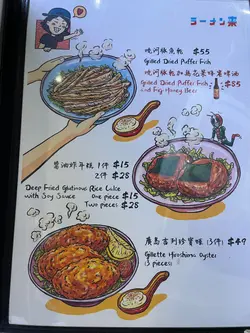 ラーメン来
燒河豚魚乾 $55
Grilled Dried Puffer Fish
燒河豚魚乾加
蜂蜜啤酒 $85
Grilled Dried Puffer Fish
and Fuji Honey Beer
醬油炸年糕 1件 $15
2件 $28
Deep Fried Glutinous Rice Cake
with Soy Sauce One piece $15
Two pieces $28
廣島吉列珍寶蠔 (3件) $49
Gillette Hiroshima Oyster
(3 pieces)